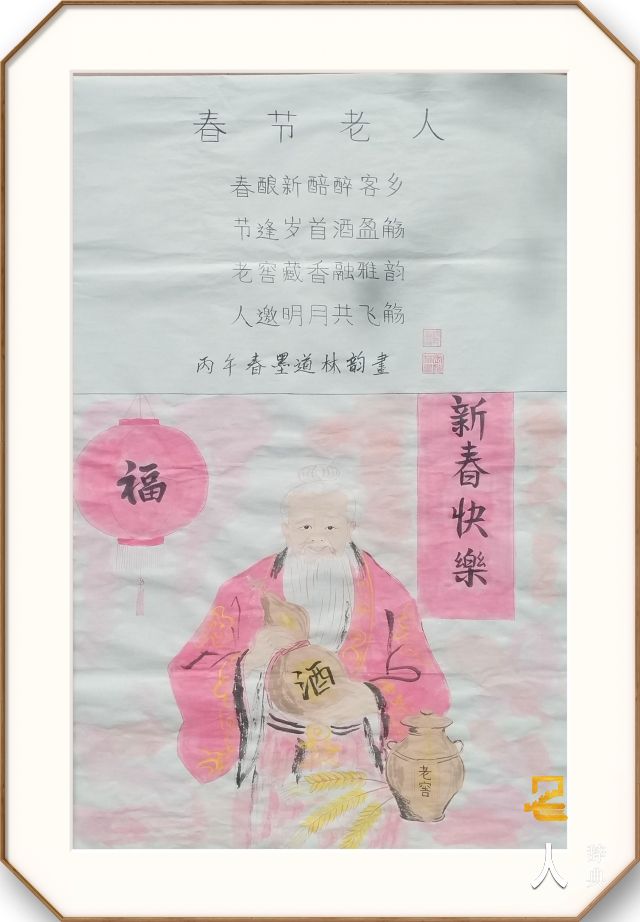 春节老人
春酿新醅醉客乡
节逢岁首酒盈觞
老窖藏香融雅韵
人邀明月共飞觞
丙午春墨道林韵畫
新春快樂
福
酒
老窖
人
辞典